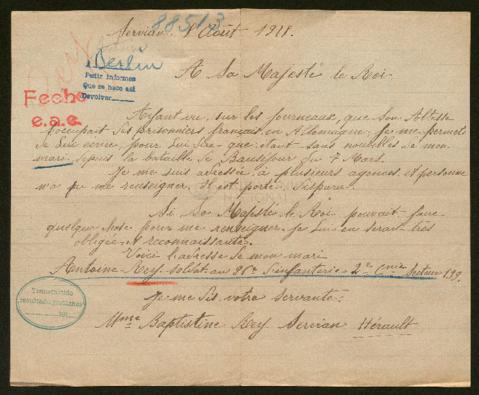 88513
Servian, 1 Août 1918.
Berlin
Pedir informes
Que se haco así
Devolver
Fecho
e.a.e.
A Sa Majesté le Roi.
Ayant vu, sur les journeaux, que Son Altesse
s'occupait des prisonniers français, en Allemagne, je me permets
de lui écrire, pour lui dire que étant sans nouvelles de mon
mari, depuis la bataille de du 7 Mars.
Je me suis adressée à plusieurs agences, et personne
n'a pu me renseigner. Il est porté disparu.
Si Sa Majesté le Roi pouvait faire
quelque chose pour me renseigner, je lui en serait très
obligée, et reconnaissante.
Voici l'adresse de mon mari
Antoine Rey soldat au 86e d'infanterie 2e Cnie Secteur 199.
Je me dis votre servante.
Mme Baptistine Rey Servian Hérault
Transmitido
resultado
191